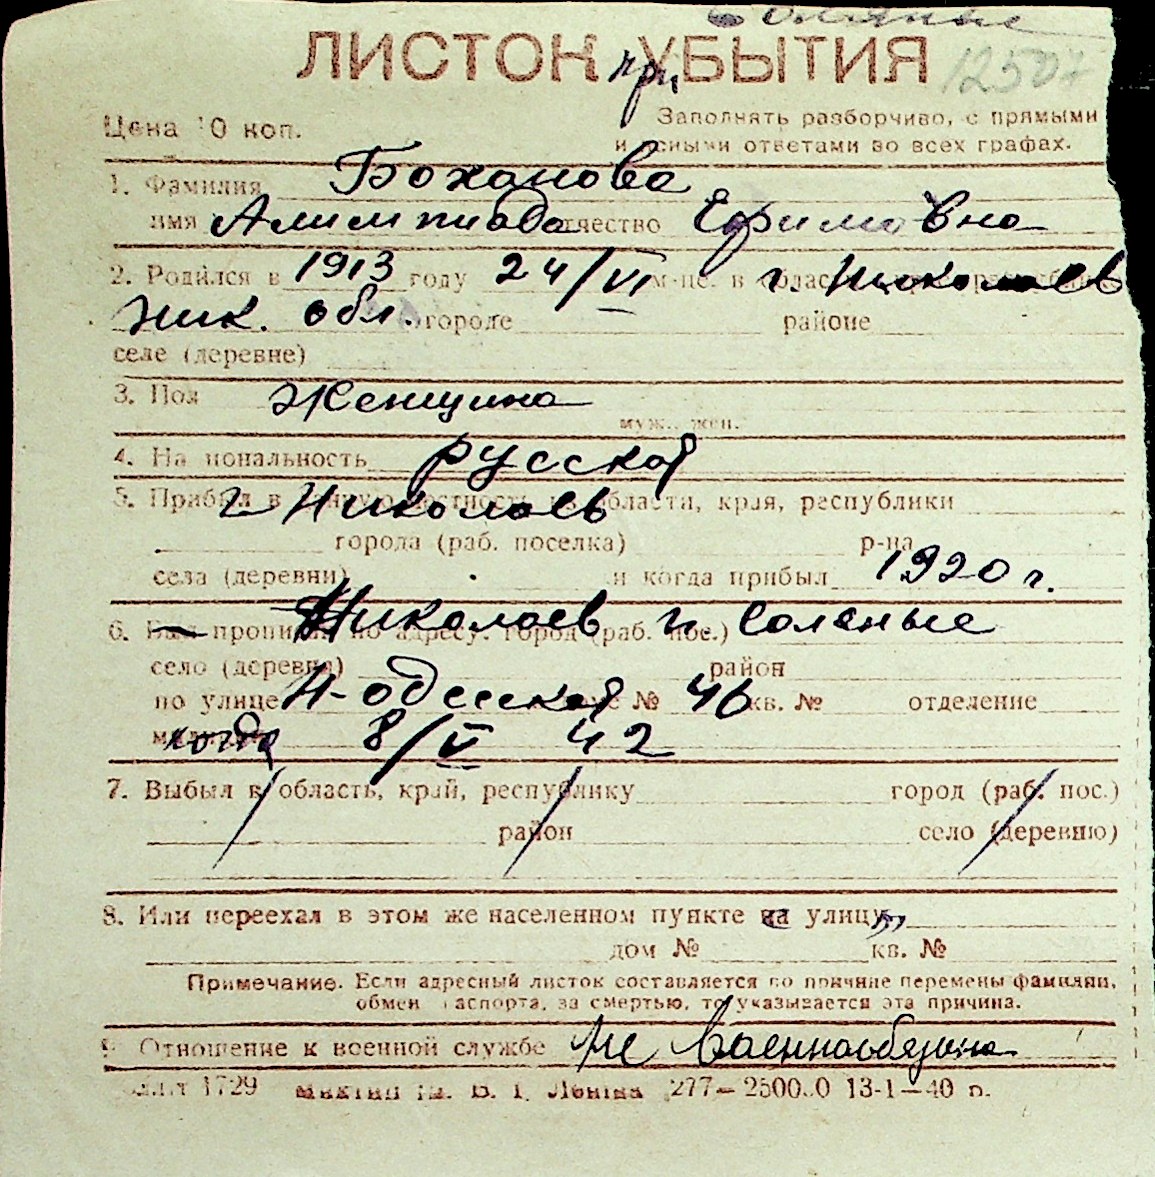 Соляные
ЛИСТОК при УБЫТИЯ 12507
Цена 10 коп.
Заполнять разборчиво, с прямыми
и ясными ответами во всех графах.
1. Фамилия Боханова
имя Алимпиада отчество Ефимовна
2. Родился в 1913 году 24/VI м-це. в г. Николаев
Ник. обл. городе районе
селе (деревне)
3. Пол Женщина
муж., жен.
4. Национальность русской
5. Прибыл в г. Николаев области, края, республики
города (раб. поселка) р-на
села (деревни) и когда прибыл 1920 г.
6. Был прописан по адресу: город (раб. пос.) Николаев п. Соленые
село (деревня) район
по улице Н-Одесской № 46 кв. № отделение
когда 8/V 42
7. Выбыл в область, край, республику город (раб. пос.)
район село (деревню)
8. Или переехал в этом же населенном пункте на улицу
дом № кв. №
Примечание. Если адресный листок составляется по причине перемены фамилии,
обмен паспорта, за смертью, то указывается эта причина.
9. Отношение к военной службе Не военнообязана
1729 В. І. Леніна 277—25000 13-1—40 р.